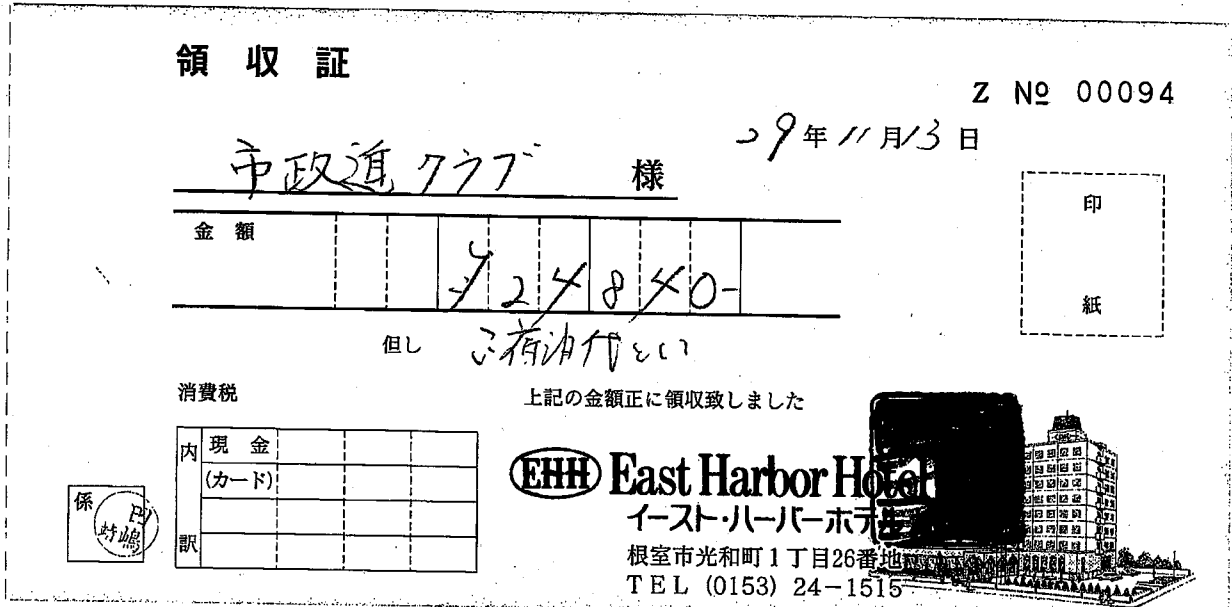 領収証
Z № 00094
29年11月13日
市政進クラブ 様
金額
¥24840-
但し ご宿泊代として
印
紙
消費税
上記の金額正に領収致しました
内訳
現金
(カード)
係
EHH East Harbor Hotel
イースト・ハーバーホテル
根室市光和町1丁目26番地
TEL (0153) 24-1515